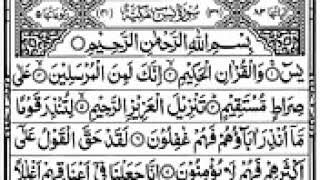 اٰيَاتُهَا ٨٣ سُوْرَةُ يٰسٓ مَكِّيَّةٌ رُكُوْعَاتُهَا ٥
بِسْمِ اللّٰهِ الرَّحْمٰنِ الرَّحِيْمِ
يٰسٓ وَالْقُرْاٰنِ الْحَكِيْمِ اِنَّكَ لَمِنَ الْمُرْسَلِيْنَ عَلٰى
صِرَاطٍ مُّسْتَقِيْمٍ تَنْزِيْلَ الْعَزِيْزِ الرَّحِيْمِ لِتُنْذِرَ قَوْمًا
مَّآ اُنْذِرَ اٰبَآؤُهُمْ فَهُمْ غٰفِلُوْنَ لَقَدْ حَقَّ الْقَوْلُ عَلٰٓى
اَكْثَرِهِمْ فَهُمْ لَا يُؤْمِنُوْنَ اِنَّا جَعَلْنَا فِيْٓ اَعْنَاقِهِمْ اَغْلٰلًا